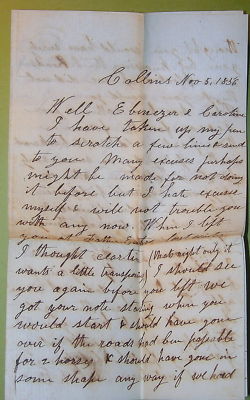 Collins Nov 5, 1856
Well Ebenezer & Caroline
I have taken up my pen
to scratch a few lines & send
to you. Many excuses perhaps
might be made for not doing
it before but I hate excuse
myself & will not trouble you
with any now. When I left
you at
I thought (that might only it
wants a little transposing) I should see
you again before you left we
got your note stating when you
would start & should have gone
over if the roads had been possible
for 2 horses & should have gone in
some shape any way if we had